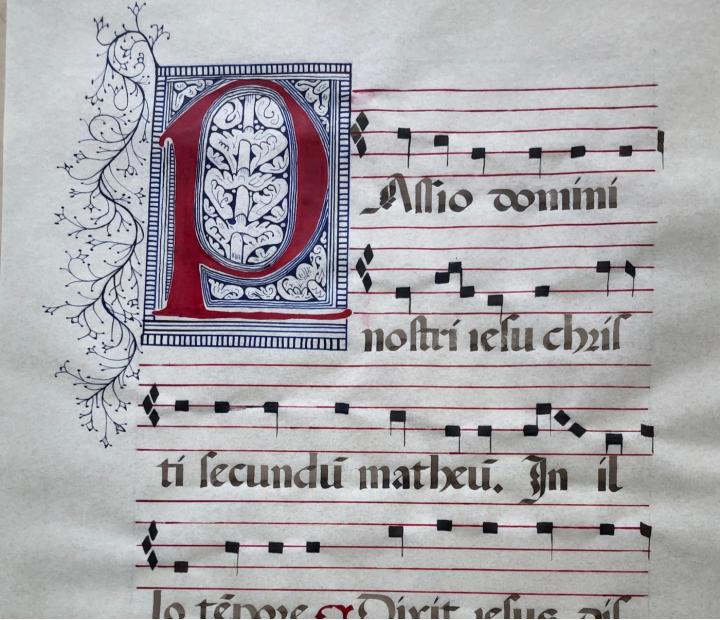 PAssio domini
nostri iesu chris
ti secundū matheū. In il
lo tēpore Dixit iesus dis